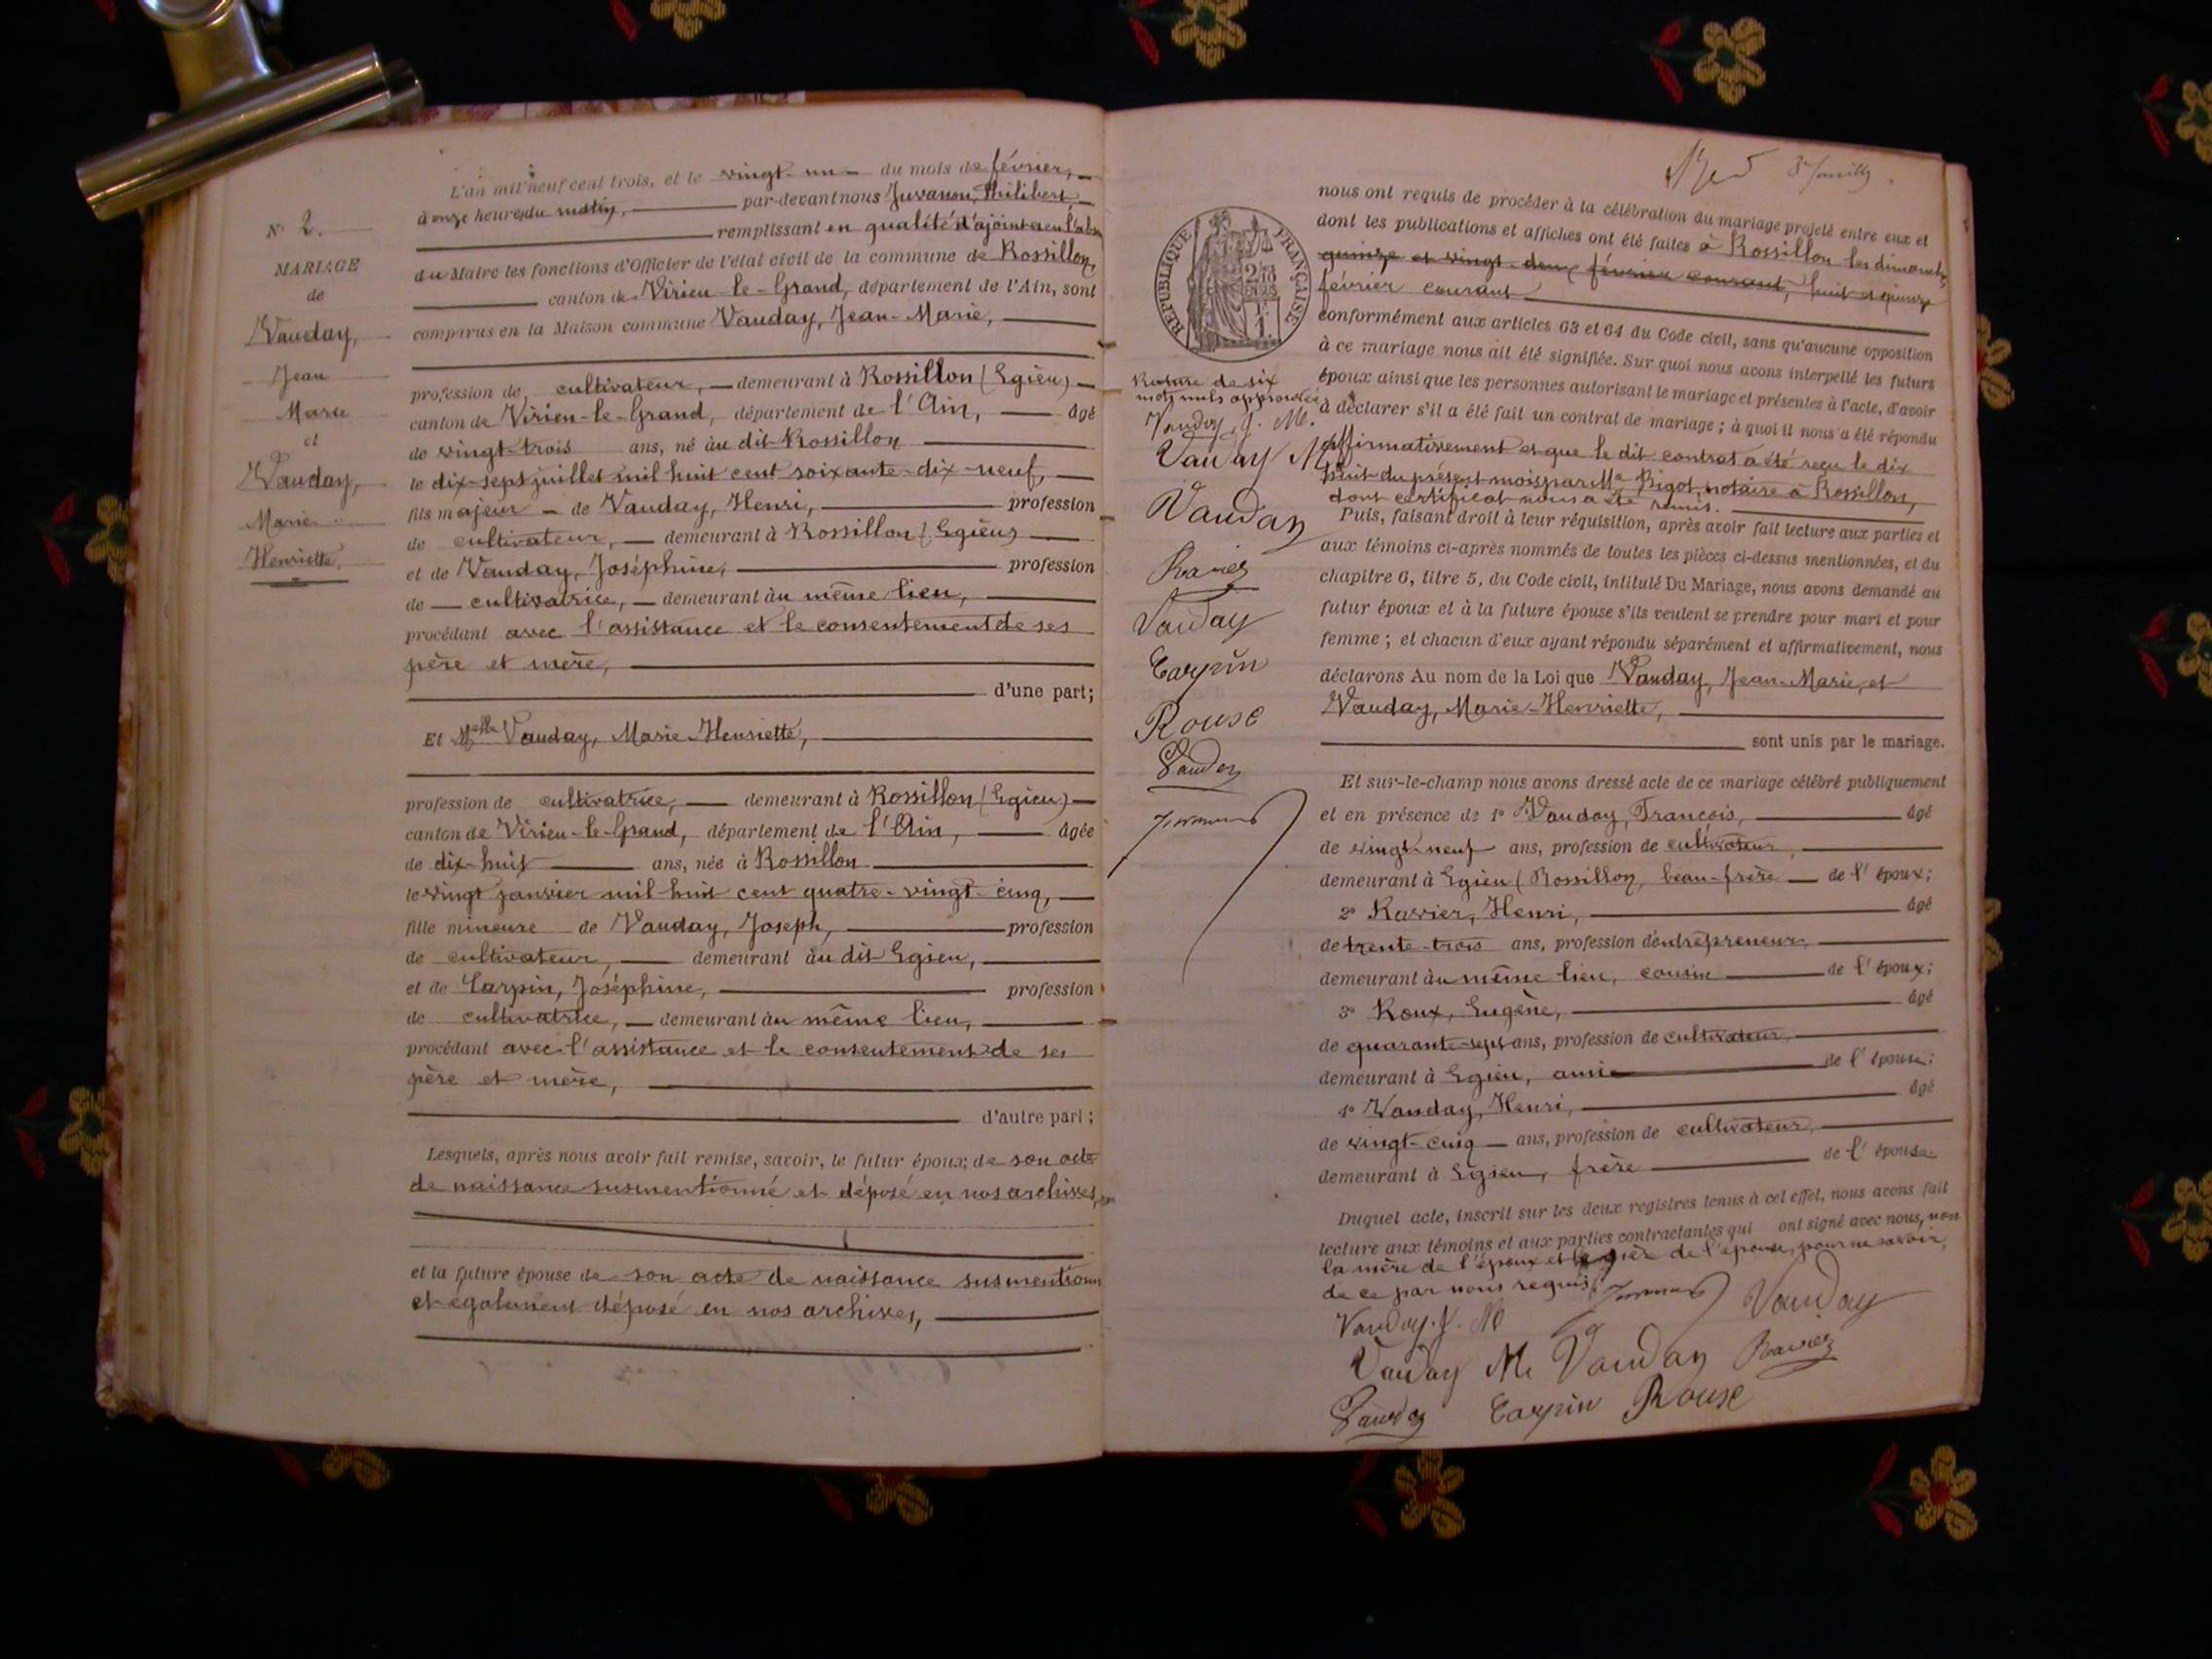 N° 2.
MARIAGE
de
Vauday,
Jean
Marie
et
Vauday,
Marie
Henriette.
L'an mil neuf cent trois, et le vingt-un du mois de février,
à onze heures du matin, par-devant nous Juvanon, Philibert,
remplissant en qualité d'ajoint et en l'abs
du Maire les fonctions d'Officier de l'état civil de la commune de Rossillon,
canton de Virieu-le-Grand, département de l'Ain, sont
comparus en la Maison commune Vauday, Jean-Marie,
profession de cultivateur, demeurant à Rossillon (Egieu)
canton de Virieu-le-Grand, département de l'Ain, âgé
de vingt-trois ans, né au dit Rossillon
le dix-sept juillet mil huit cent soixante-dix-neuf,
fils majeur de Vauday, Henri, profession
de cultivateur, demeurant à Rossillon (Egieu)
et de Vauday, Joséphine, profession
de cultivatrice, demeurant au même lieu,
procédant avec l'assistance et le consentement de ses
père et mère,
d'une part;
Et Melle Vauday, Marie-Henriette,
profession de cultivatrice, demeurant à Rossillon (Egieu)
canton de Virieu-le-Grand, département de l'Ain, âgée
de dix-huit ans, née à Rossillon
le vingt janvier mil huit cent quatre-vingt-cinq,
fille mineure de Vauday, Joseph, profession
de cultivateur, demeurant au dit Egieu,
et de Carpin, Joséphine, profession
de cultivatrice, demeurant au même lieu,
procédant avec l'assistance et le consentement de ses
père et mère,
d'autre part;
Lesquels, après nous avoir fait remise, savoir, le futur époux; de son acte
de naissance susmentionné et déposé en nos archives,
et la future épouse de son acte de naissance susmentionn
et également déposé en nos archives,
RÉPUBLIQUE FRANÇAISE
Rature de six
mots nuls approuvée
Vauday J. M.
Vauday M
Vauday
Ravier
Vauday
Carpin
Rouse
Vauday
nous ont requis de procéder à la célébration du mariage projeté entre eux et
dont les publications et affiches ont été faites à Rossillon les dimanches
quinze et vingt-deux février courant, huit et quinze
février courant
conformément aux articles 63 et 64 du Code civil, sans qu'aucune opposition
à ce mariage nous ait été signifiée. Sur quoi nous avons interpellé les futurs
époux ainsi que les personnes autorisant le mariage et présentes à l'acte, d'avoir
à déclarer s'il a été fait un contrat de mariage; à quoi il nous a été répondu
affirmativement et que le dit contrat a été reçu le dix
huit du présent mois par Me Bigot, notaire à Rossillon,
dont certificat nous a été remis.
Puis, faisant droit à leur réquisition, après avoir fait lecture aux parties et
aux témoins ci-après nommés de toutes les pièces ci-dessus mentionnées, et du
chapitre 6, titre 5, du Code civil, intitulé Du Mariage, nous avons demandé au
futur époux et à la future épouse s'ils veulent se prendre pour mari et pour
femme; et chacun d'eux ayant répondu séparément et affirmativement, nous
déclarons Au nom de la Loi que Vauday, Jean-Marie, et
Vauday, Marie-Henriette,
sont unis par le mariage.
Et sur-le-champ nous avons dressé acte de ce mariage célébré publiquement
et en présence de 1° Vauday, François, âgé
de vingt-neuf ans, profession de cultivateur,
demeurant à Egieu (Rossillon, beau-frère de l'époux;
2° Ravier, Henri, âgé
de trente-trois ans, profession d'entrepreneur,
demeurant au même lieu, cousin de l'époux;
3° Roux, Eugène, âgé
de quarante-sept ans, profession de cultivateur,
demeurant à Egieu, ami de l'épouse;
4° Vauday, Henri, âgé
de vingt-cinq ans, profession de cultivateur,
demeurant à Egieu, frère de l'épouse.
Duquel acte, inscrit sur les deux registres tenus à cet effet, nous avons fait
lecture aux témoins et aux parties contractantes qui ont signé avec nous, non
la mère de l'époux et le père de l'épouse, pour ne savoir,
de ce par nous requis.
Vauday
Vauday. J. M
Vauday M. Vauday Ravier
Vauday Carpin Rouse